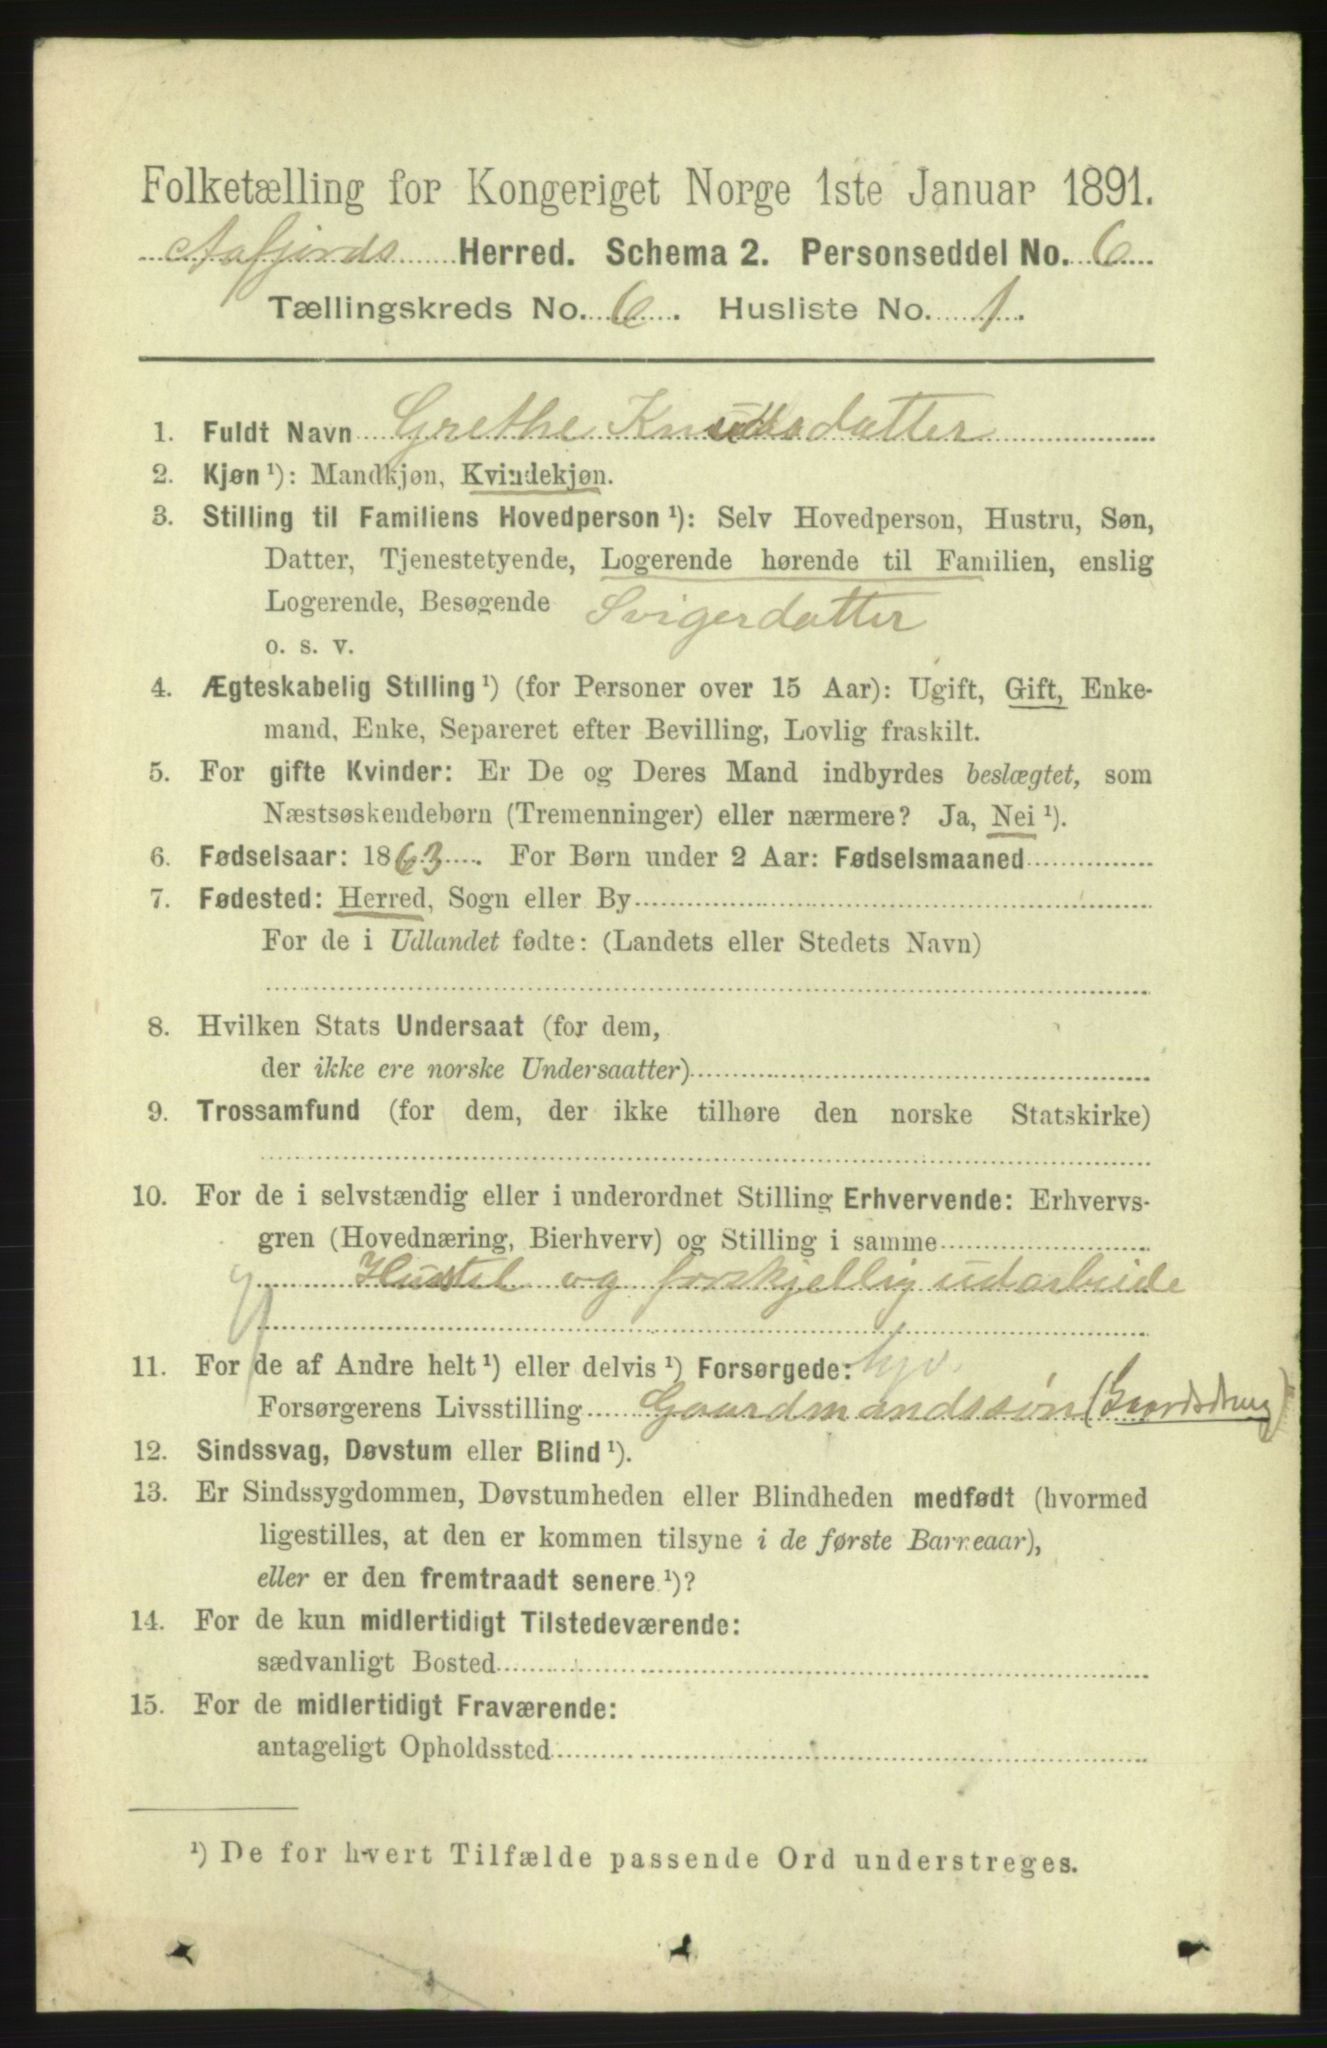 Folketælling for Kongeriget Norge 1ste Januar 1891.
Aafjords Herred. Schema 2. Personseddel No. 6
Tællingskreds No. 6. Husliste No. 1.
1. Fuldt Navn Grethe Knudsdatter
2. Kjøn ¹): Mandkjøn, Kvindekjøn.
3. Stilling til Familiens Hovedperson ¹): Selv Hovedperson, Hustru, Søn,
Datter, Tjenestetyende, Logerende hørende til Familien, enslig
Logerende, Besøgende Svigerdatter
o. s. v.
4. Ægteskabelig Stilling ¹) (for Personer over 15 Aar): Ugift, Gift, Enke-
mand, Enke, Separeret efter Bevilling, Lovlig fraskilt.
5. For gifte Kvinder: Er De og Deres Mand indbyrdes beslægtet, som
Næstsøskendebørn (Tremenninger) eller nærmere? Ja, Nei ¹).
6. Fødselsaar: 1863. For Børn under 2 Aar: Fødselsmaaned
7. Fødested: Herred, Sogn eller By
For de i Udlandet fødte: (Landets eller Stedets Navn)
8. Hvilken Stats Undersaat (for dem,
der ikke ere norske Undersaatter)
9. Trossamfund (for dem, der ikke tilhøre den norske Statskirke)
10. For de i selvstændig eller i underordnet Stilling Erhvervende: Erhvervs-
gren (Hovednæring, Bierhverv) og Stilling i samme
Husstel og forskjellig udarbeide
11. For de af Andre helt ¹) eller delvis ¹) Forsørgede:
Forsørgerens Livsstilling Gaardmandssøn (Gaardsdreng)
12. Sindssvag, Døvstum eller Blind ¹).
13. Er Sindssygdommen, Døvstumheden eller Blindheden medfødt (hvormed
ligestilles, at den er kommen tilsyne i de første Barneaar),
eller er den fremtraadt senere ¹)?
14. For de kun midlertidigt Tilstedeværende:
sædvanligt Bosted
15. For de midlertidigt Fraværende:
antageligt Opholdssted
¹) De for hvert Tilfælde passende Ord understreges.